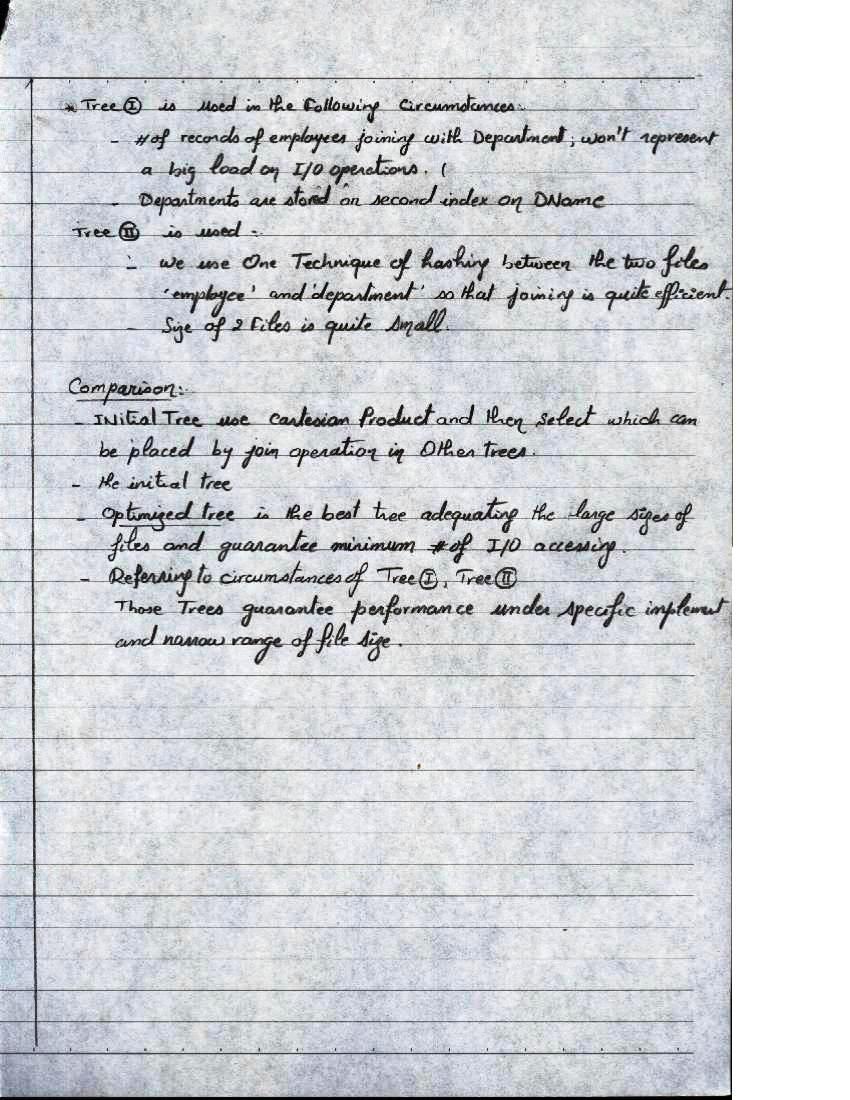 * Tree Ⓘ is used in the Following Circumstances:.
- # of records of employees joining with Department; won't represent
a big load on I/O operations. (
- Departments are stored on second index on DName
Tree Ⓘ Ⓘ is used :.
- we use One Technique of hashing between the two files
'employee' and 'department' so that joining is quite efficient.
- Size of 2 Files is quite small.
Comparison:.
- INitial Tree use Cartesian Product and then select which can
be placed by join operation in Other Trees.
- the initial tree
- Optimized tree is the best tree adequating the large sizes of
files and guarantee minimum # of I/O accessing.
- Referring to circumstances of Tree Ⓘ, Tree ⒾⒾ
Those Trees guarantee performance under specific implement
and narrow range of file size.